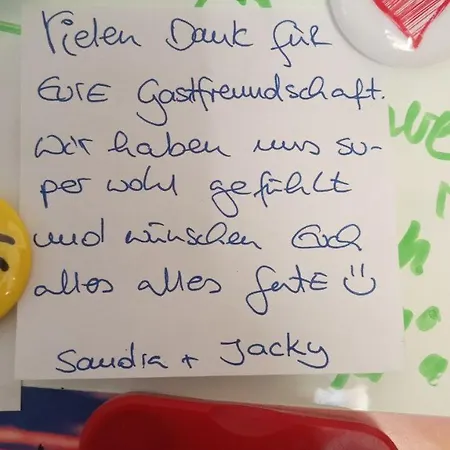 Vielen Dank für
EURE Gastfreundschaft.
Wir haben uns su-
per wohl gefühlt
und wünschen Euch
alles alles GutE ☺
Sandra + Jacky